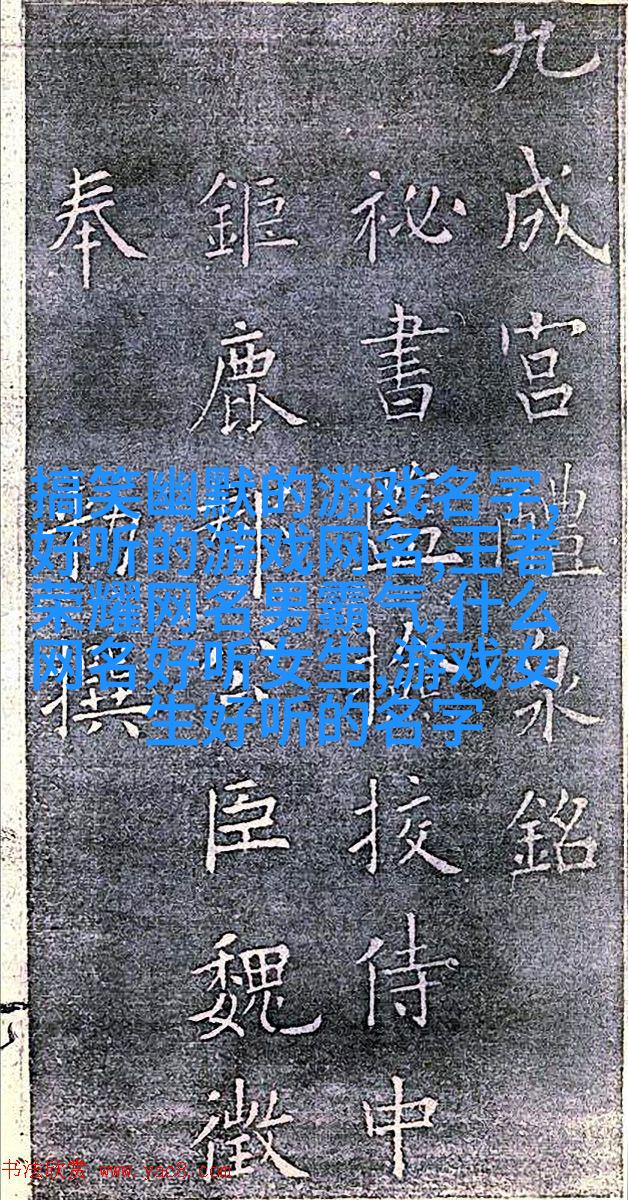 九成宫醴泉銘
祕書監檢挍侍中
鉅鹿郡公臣魏徵
奉勑撰
搞笑幽默的游戏名字,
好听的游戏网名,王者
荣耀网名男霸气,什么
网名好听女生,游戏女
生好听的名字
书法欣赏 www.yac8.com